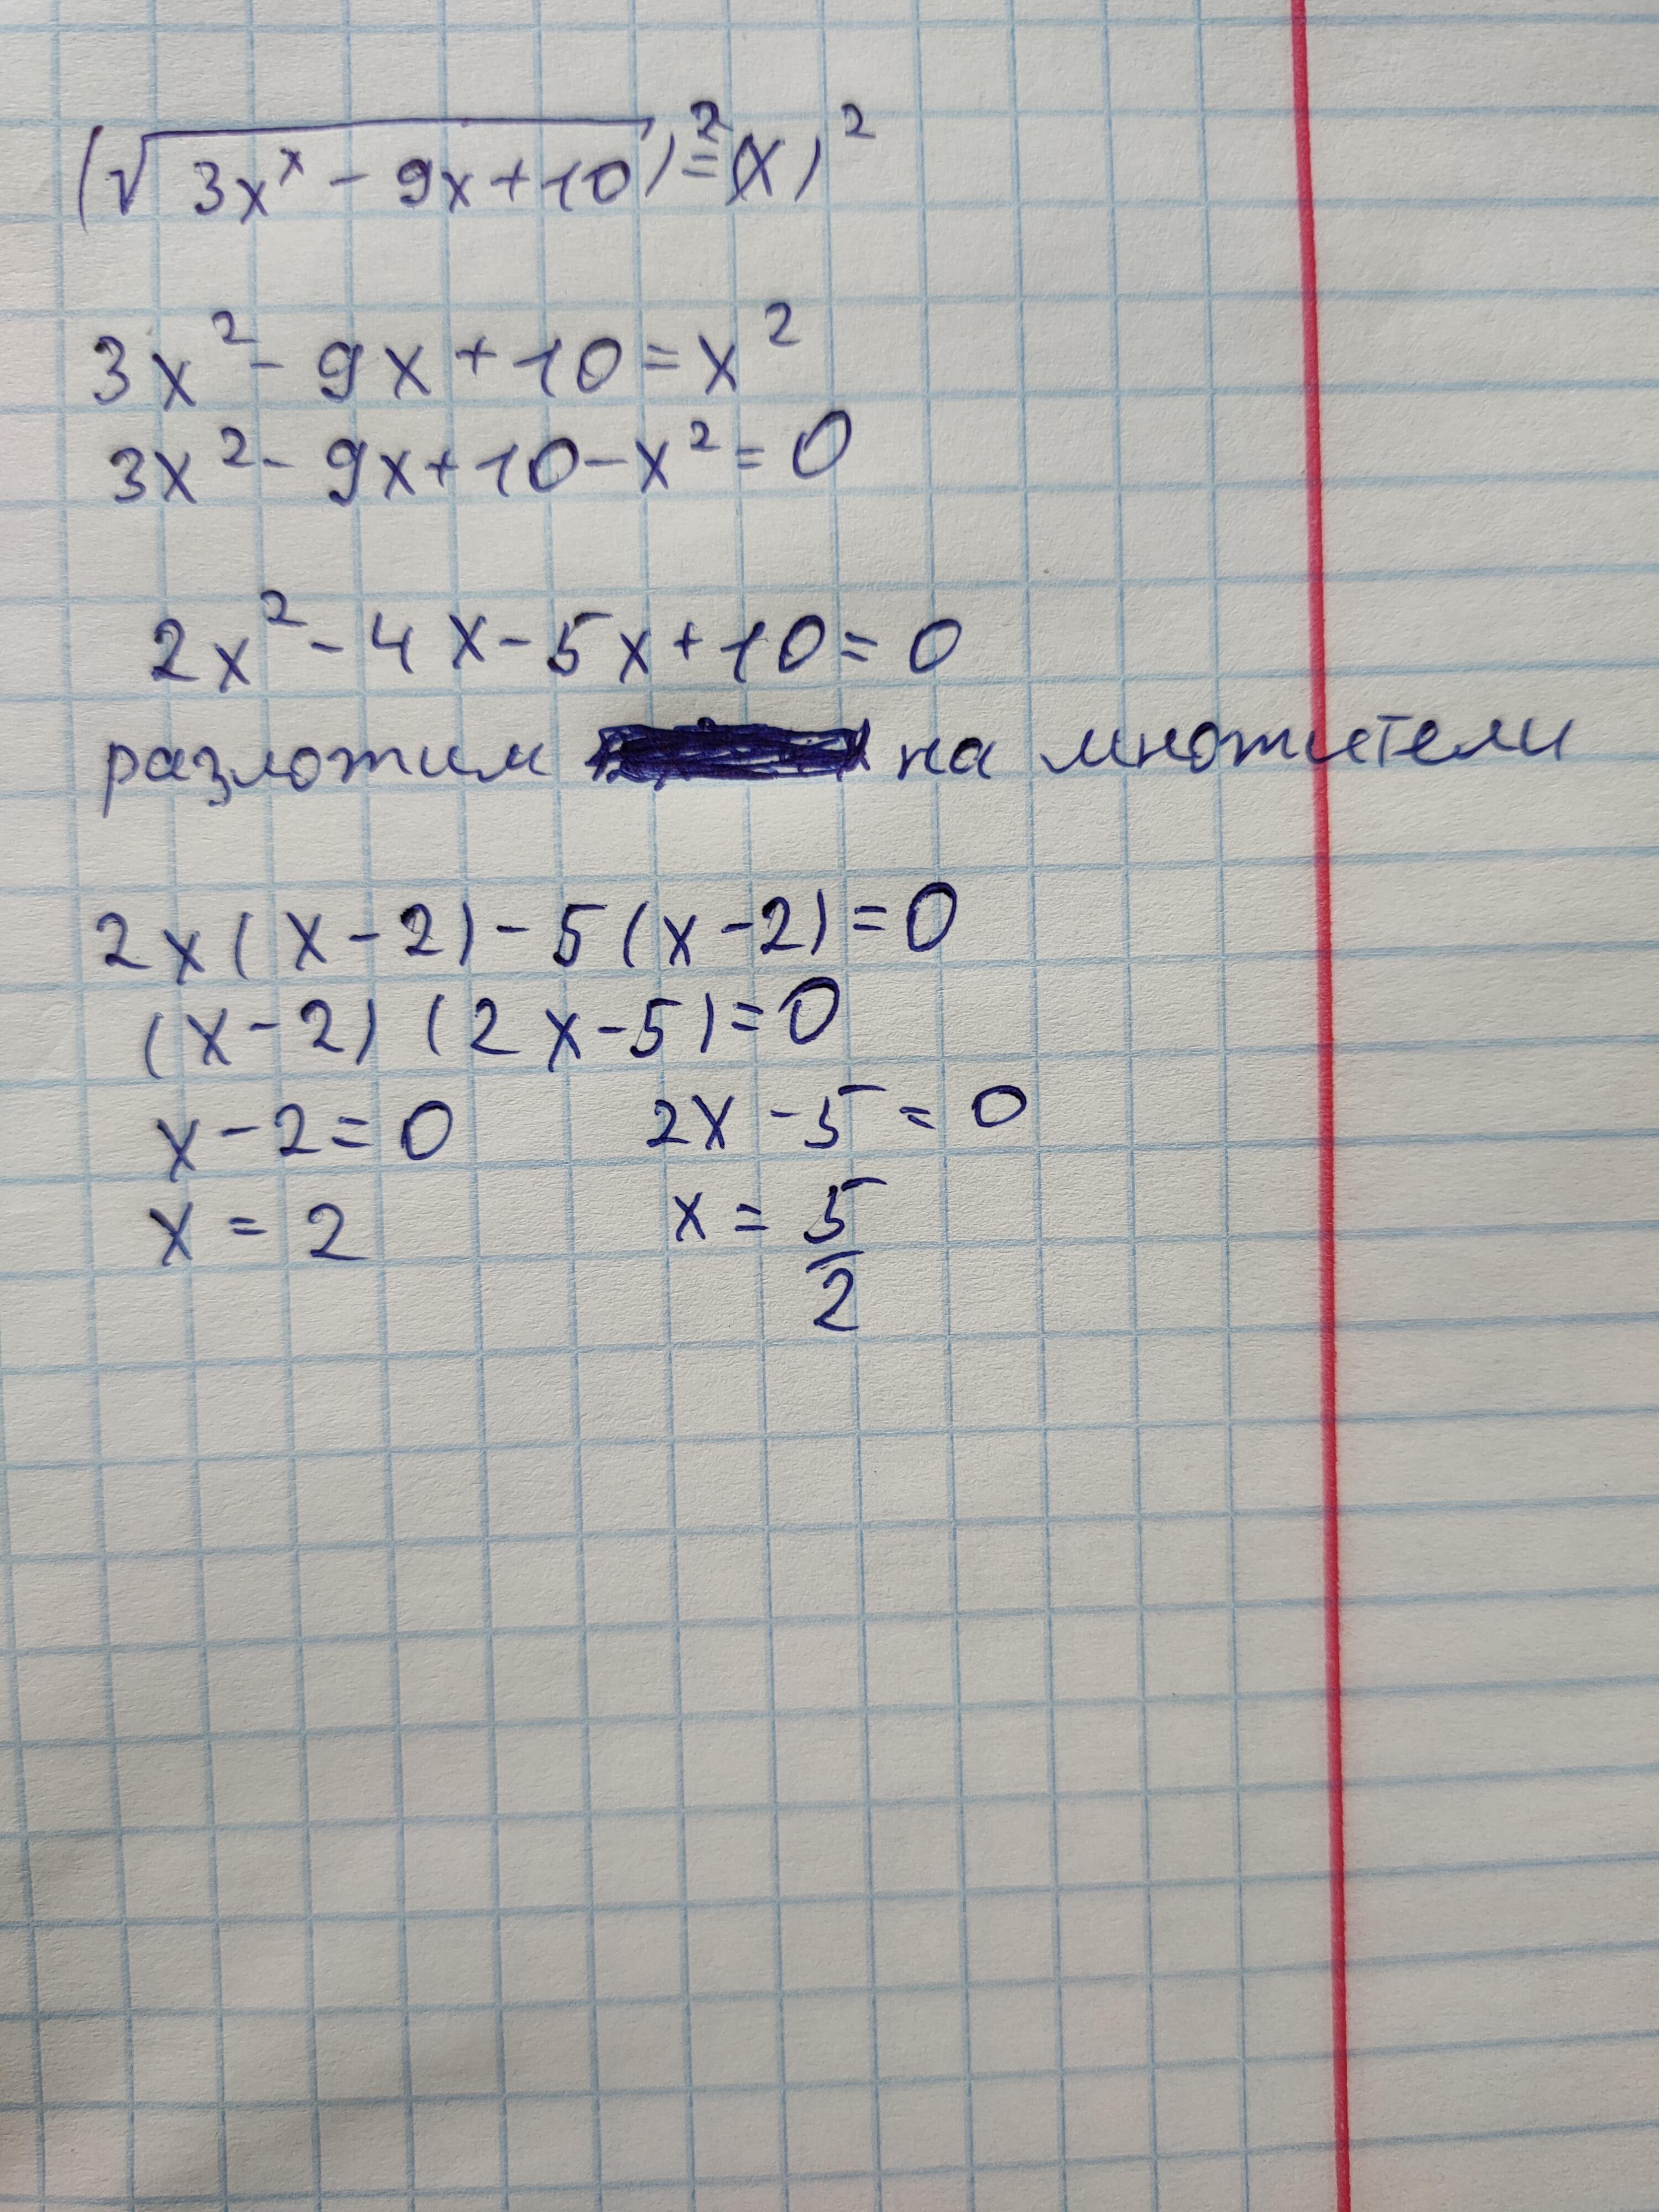 (√3xˣ - 9x + 10)² = (x)²
3x² - 9x + 10 = x²
3x² - 9x + 10 - x² = 0
2x² - 4x - 5x + 10 = 0
разложим на множители
2x(x - 2) - 5(x - 2) = 0
(x - 2)(2x - 5) = 0
x - 2 = 0 2x - 5 = 0
x = 2 x = 5/2